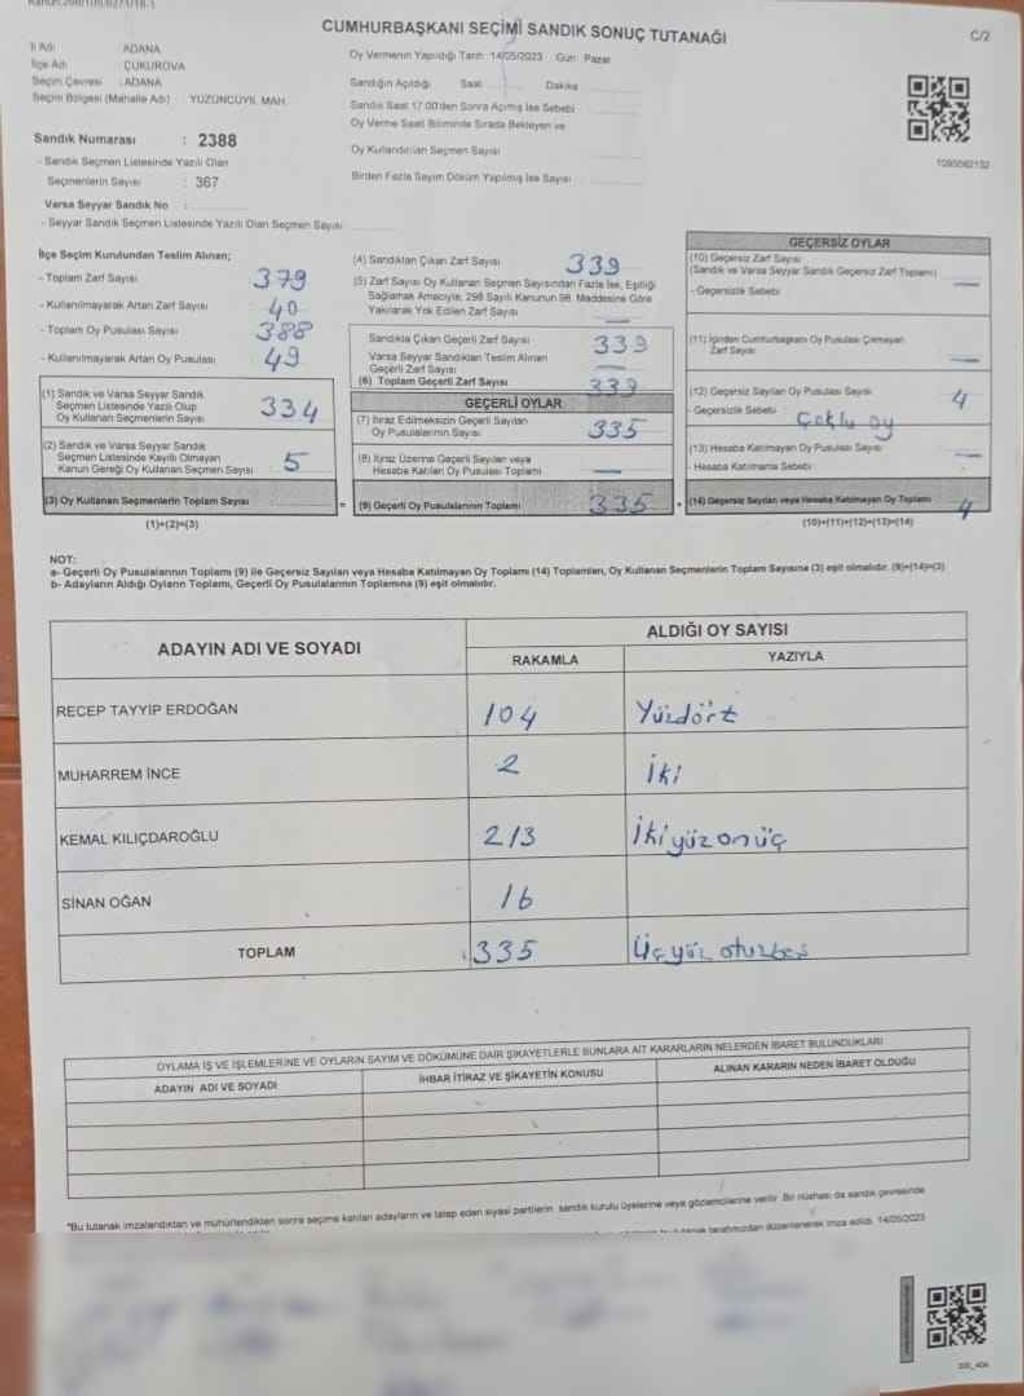 CUMHURBAŞKANI SEÇİMİ SANDIK SONUÇ TUTANAĞI
C/2
İl Adı ADANA
İlçe Adı ÇUKUROVA
Seçim Çevresi : ADANA
Seçim Bölgesi (Mahalle Adı) YÜZÜNCÜYIL MAH.
Sandık Numarası : 2388
- Sandık Seçmen Listesinde Yazılı Olan
Seçmenlerin Sayısı : 367
Varsa Seyyar Sandık No :
- Seyyar Sandık Seçmen Listesinde Yazılı Olan Seçmen Sayısı
Oy Vermenin Yapıldığı Tarih: 14/05/2023 Gün: Pazar
Sandığın Açıldığı Saat Dakika
Sandık Saat 17.00'den Sonra Açımış İse Sebebi
Oy Verme Saati Bitiminde Sırada Bekleyen ve
Oy Kullandırılan Seçmen Sayısı
Birden Fazla Sayım Döküm Yapılmış İse Sayısı
İlçe Seçim Kurulundan Teslim Alınan;
- Toplam Zarf Sayısı 379
- Kullanılmayarak Artan Zarf Sayısı 40
- Toplam Oy Pusulası Sayısı 388
- Kullanılmayarak Artan Oy Pusulası 49
(1) Sandık ve Varsa Seyyar Sandık
Seçmen Listesinde Yazılı Olup
Oy Kullanan Seçmenlerin Sayısı 334
(2) Sandık ve Varsa Seyyar Sandık
Seçmen Listesinde Kayıtlı Olmayan
Kanun Gereği Oy Kullanan Seçmen Sayısı 5
(3) Oy Kullanan Seçmenlerin Toplam Sayısı =
(1)+(2)=(3)
(4) Sandıktan Çıkan Zarf Sayısı 339
(5) Zarf Sayısı Oy Kullanan Seçmen Sayısından Fazla İse, Eşitliği
Sağlamak Amacıyla, 298 Sayılı Kanunun 98. Maddesine Göre
Yakılarak Yok Edilen Zarf Sayısı —
Sandıkta Çıkan Geçerli Zarf Sayısı 339
Varsa Seyyar Sandıktan Teslim Alınan
Geçerli Zarf Sayısı —
(6) Toplam Geçerli Zarf Sayısı 339
GEÇERLİ OYLAR
(7) İtiraz Edilmeksizin Geçerli Sayılan
Oy Pusulalarının Sayısı 335
(8) İtiraz Üzerine Geçerli Sayılan veya
Hesaba Katılan Oy Pusulası Toplamı —
(9) Geçerli Oy Pusulalarının Toplamı 335 +
GEÇERSİZ OYLAR
(10) Geçersiz Zarf Sayısı
(Sandık ve Varsa Seyyar Sandık Geçersiz Zarf Toplamı) —
- Geçersizlik Sebebi
(11) İçinden Cumhurbaşkanı Oy Pusulası Çıkmayan
Zarf Sayısı —
(12) Geçersiz Sayılan Oy Pusulası Sayısı 4
- Geçersizlik Sebebi Çoklu oy
(13) Hesaba Katılmayan Oy Pusulası Sayısı —
- Hesaba Katılmama Sebebi
(14) Geçersiz Sayılan veya Hesaba Katılmayan Oy Toplamı 4
(10)+(11)+(12)+(13)=(14)
NOT:
a- Geçerli Oy Pusulalarının Toplamı (9) ile Geçersiz Sayılan veya Hesaba Katılmayan Oy Toplamı (14) Toplamları, Oy Kullanan Seçmenlerin Toplam Sayısına (3) eşit olmalıdır. (9)+(14)=(3)
b- Adayların Aldığı Oyların Toplamı, Geçerli Oy Pusulalarının Toplamına (9) eşit olmalıdır.
ADAYIN ADI VE SOYADI
ALDIĞI OY SAYISI
RAKAMLA YAZIYLA
RECEP TAYYİP ERDOĞAN 104 Yüzdört
MUHARREM İNCE 2 İki
KEMAL KILIÇDAROĞLU 213 İkiyüzonüç
SİNAN OĞAN 16
TOPLAM 335 Üçyüz otuzbeş
OYLAMA İŞ VE İŞLEMLERİNE VE OYLARIN SAYIM VE DÖKÜMÜNE DAİR ŞİKAYETLERLE BUNLARA AİT KARARLARIN NELERDEN İBARET BULUNDUKLARI
ADAYIN ADI VE SOYADI İHBAR İTİRAZ VE ŞİKAYETİN KONUSU ALINAN KARARIN NEDEN İBARET OLDUĞU
*Bu tutanak imzalandıktan ve mühürlendikten sonra seçime katılan adayların ve talep eden siyasi partilerin sandık kurulu üyelerine veya gözlemcilerine verilir. Bir nüshası da sandık çevresinde
tarafımızdan düzenlenerek imza edildi. 14/05/2023